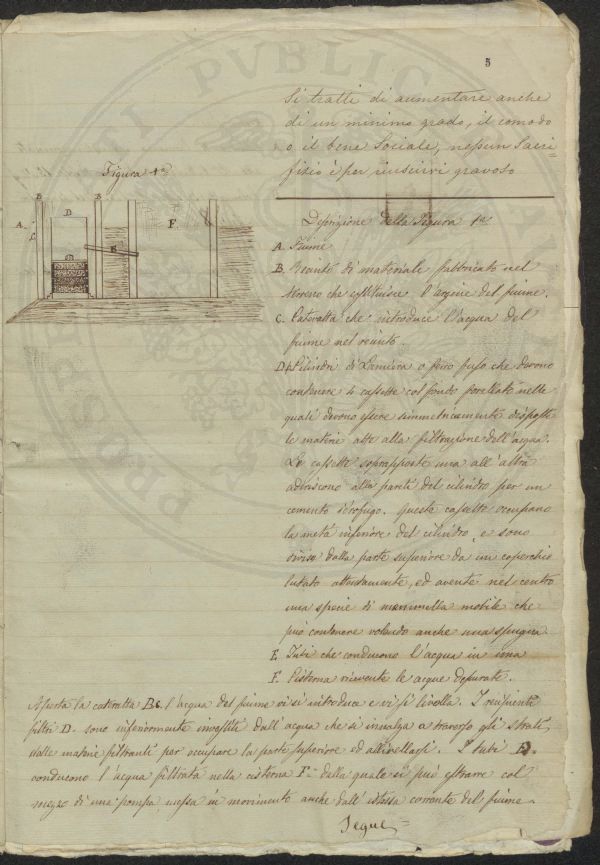 5
Si tratti di aumentare anche
di un minimo grado, il comodo
o il bene Sociale, nessun Sacri=
fizio è per riuscirvi gravoso
Figura 1ª
B B
D
A
C
E
F.
Descrizione della Figura 1ª
A. Fiume
B. Recinto di materiale fabbricato nel
terreno che costituisce l'argine del fiume.
C. Cateratta che introduce l'acqua del
fiume nel recinto.
D. Cilindri di Lamiera o ferro fuso che devono
contenere 4 cassette col fondo forellato nelle
quali devono essere simmetricamente disposte
le materie atte alla filtrazione dell'acqua.
Le cassette soprapposte una all'altra
aderiscono alla pareti del cilindro per un
cemento idrofugo. Queste cassette occupano
la metà inferiore del cilindro e sono
divise dalla parte superiore da un coperchio
lutato attentamente, ed avente nel centro
una specie di mammella mobile che
può contenere volendo anche una spugna
E. Tubi che conducono l'acqua in una
F. Cisterna ricevente le acque depurate.
Aperta la cateratta B.C. l'acqua del fiume vi si introduce e vi si livella. I recipienti
filtri D. sono inferiormente investiti dall'acqua che s'innalza a traverso gli strati,
dalle materie filtranti per occupare la parte superiore ed allivellarsi. I tubi
conducono l'acqua filtrata nella cisterna F. dalla quale si può estrarre col
mezzo di una pompa, messa in movimento anche dall'istessa corrente del fiume.
Segue
PUBLIC